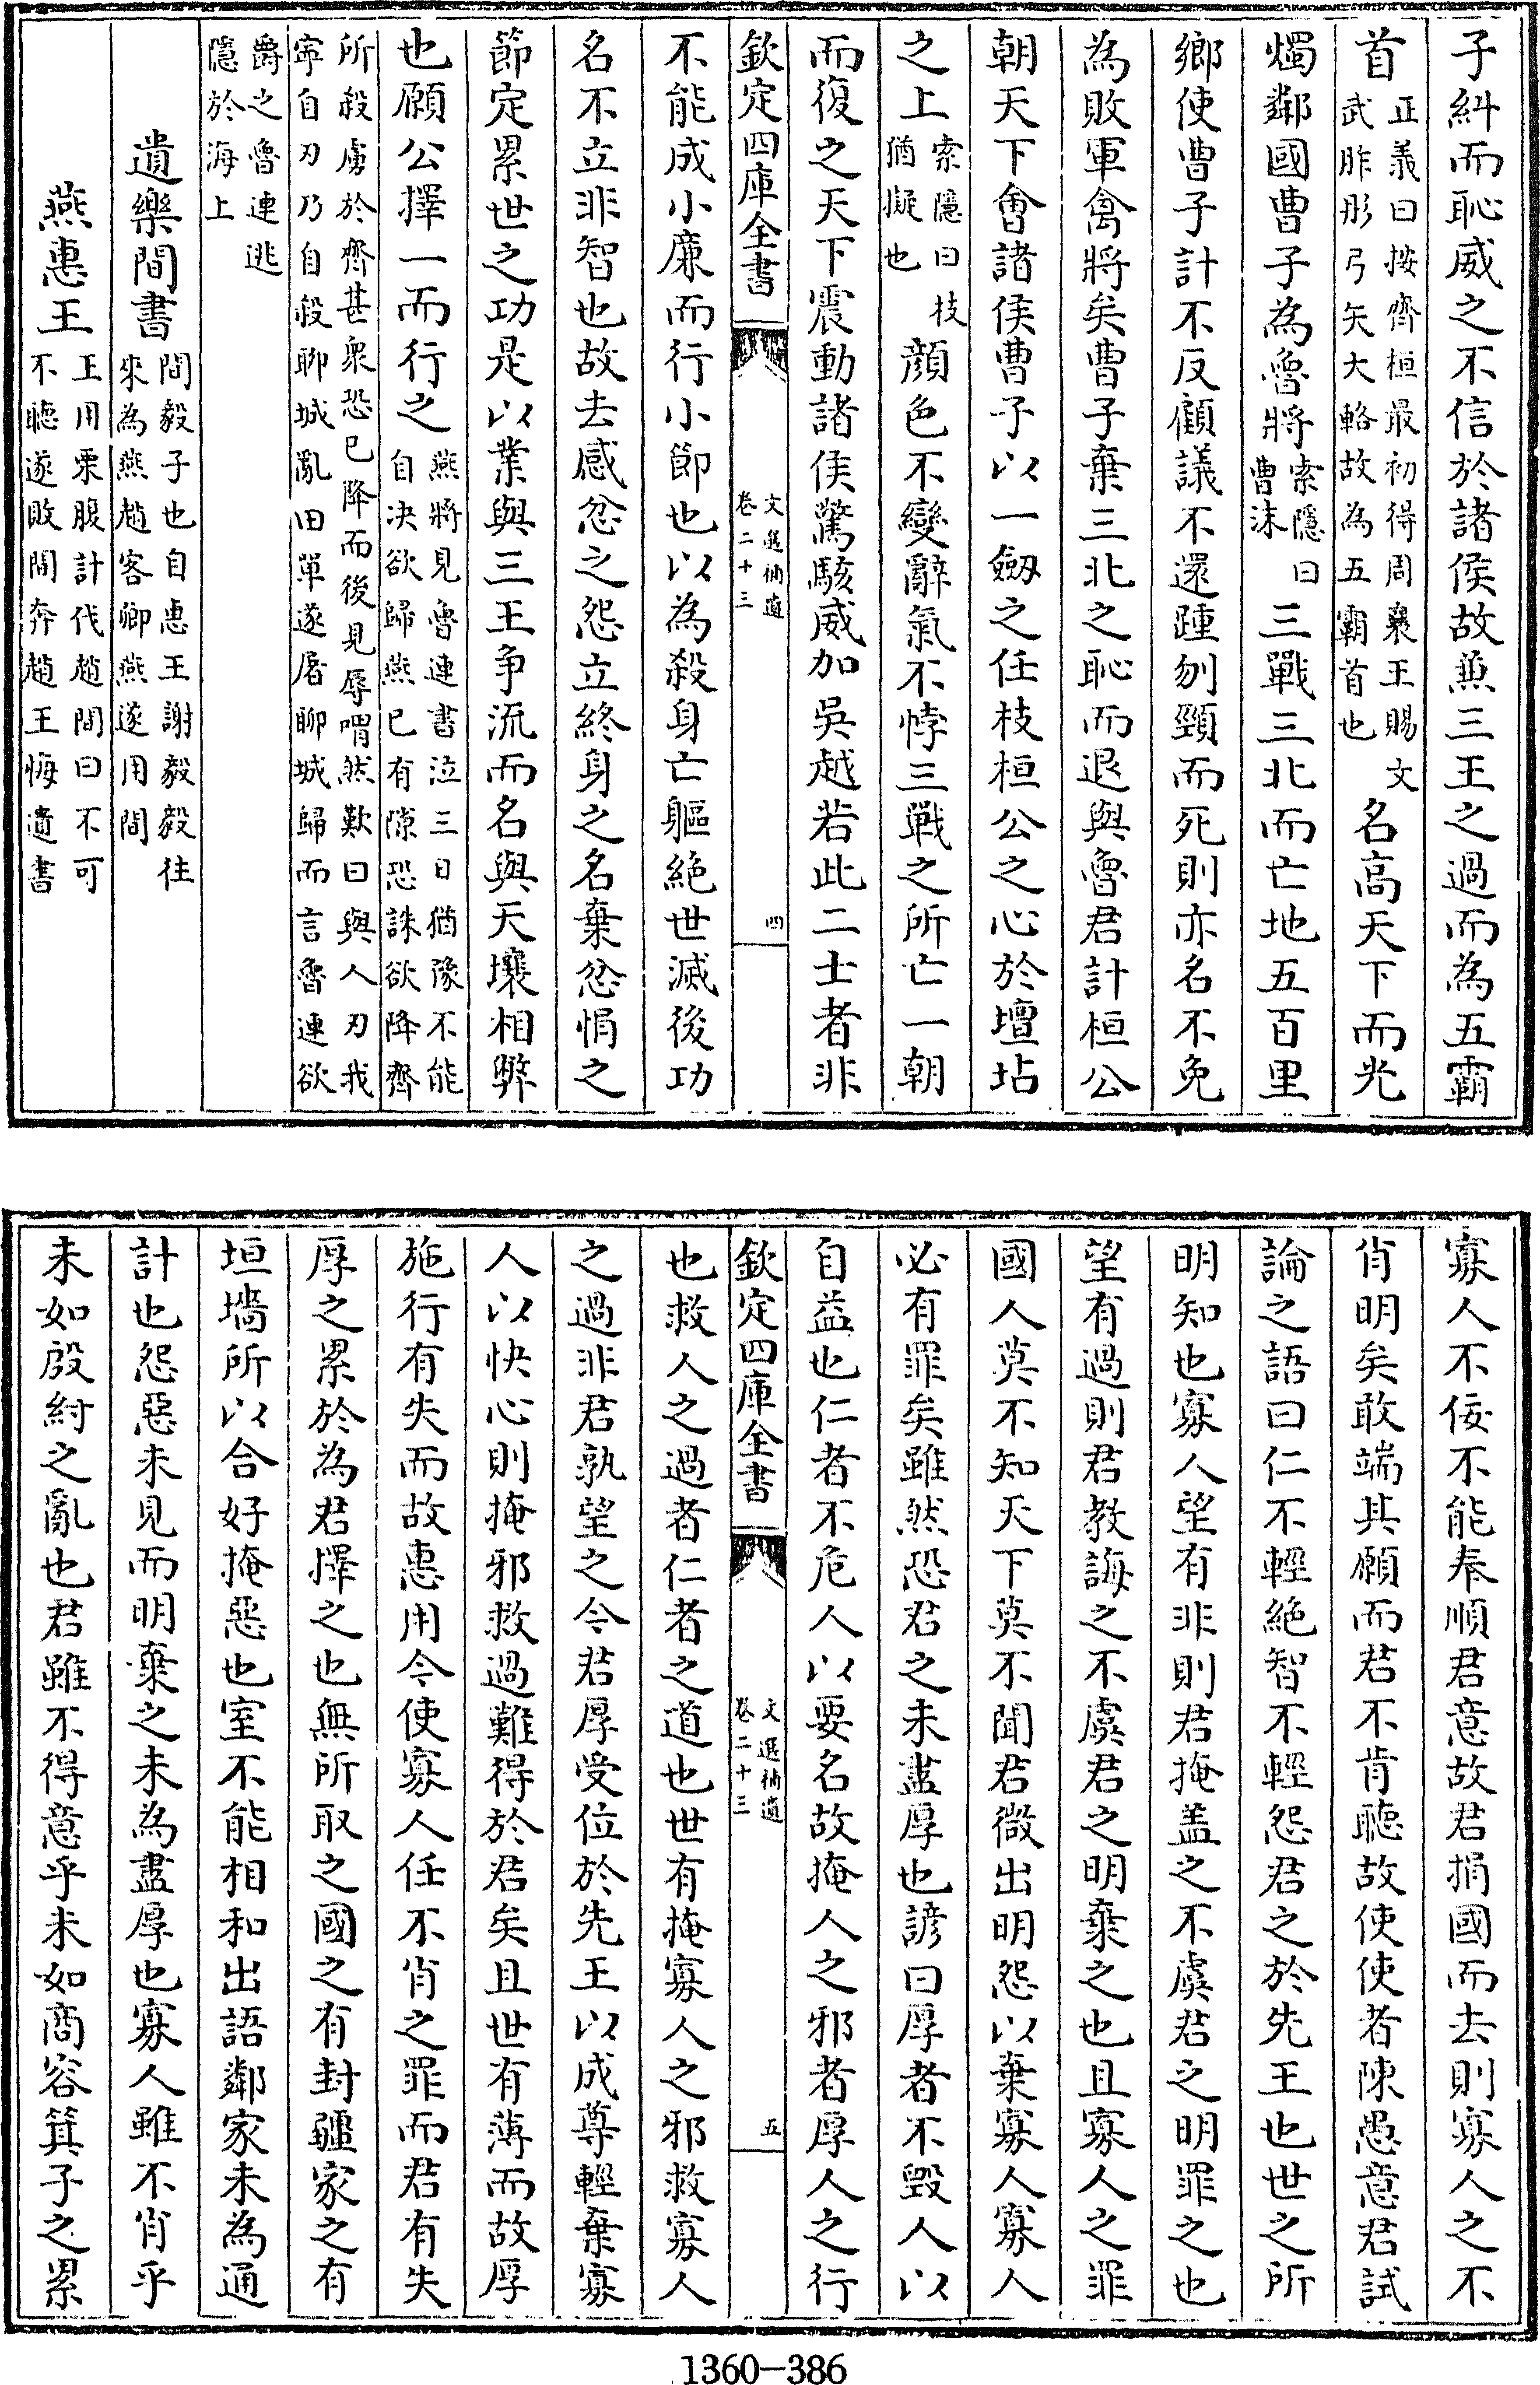 子糾而恥威之不信於諸侯故兼三王之過而為五霸
首正義曰按齊桓最初得周襄王賜文武胙彤弓矢大輅故為五霸首也名高天下而光
燭鄰國曹子為魯將索隱曰曹沫三戰三北而亡地五百里
鄉使曹子計不反顧議不還踵刎頸而死則亦名不免
為敗軍禽將矣曹子棄三北之恥而退與魯君計桓公
朝天下會諸侯曹子以一劒之任枝桓公之心於壇坫
之上索隱曰枝猶擬也顔色不變辭氣不悖三戰之所亡一朝
而復之天下震動諸侯驚駭威加吳越若此二士者非
欽定四庫全書 文選補遺卷二十三 四
不能成小廉而行小節也以為殺身亡軀絶世滅後功
名不立非智也故去感忿之怨立終身之名棄忿悁之
節定累世之功是以業與三王争流而名與天壤相弊
也願公擇一而行之燕將見魯連書泣三日猶豫不能自决欲歸燕已有隙恐誅欲降齊
所殺虜於齊甚衆恐已降而後見辱喟然歎曰與人刃我寧自刃乃自殺聊城亂田單遂屠聊城歸而言魯連欲
爵之魯連逃隱於海上
遺樂間書間毅子也自惠王謝毅毅往來為燕趙客卿燕遂用間
燕惠王王用栗腹計代趙間曰不可不聽遂敗間奔趙王悔遺書
寡人不佞不能奉順君意故君捐國而去則寡人之不
肖明矣敢端其願而君不肯聽故使使者陳愚意君試
論之語曰仁不輕絶智不輕怨君之於先王也世之所
明知也寡人望有非則君掩盖之不虞君之明罪之也
望有過則君教誨之不虞君之明棄之也且寡人之罪
國人莫不知天下莫不聞君微出明怨以棄寡人寡人
必有罪矣雖然恐君之未盡厚也諺曰厚者不毀人以
自益也仁者不危人以要名故掩人之邪者厚人之行
欽定四庫全書 文選補遺卷二十三 五
也救人之過者仁者之道也世有掩寡人之邪救寡人
之過非君孰望之今君厚受位於先王以成尊輕棄寡
人以快心則掩邪救過難得於君矣且世有薄而故厚
施行有失而故惠用今使寡人任不肖之罪而君有失
厚之累於為君擇之也無所取之國之有封疆家之有
垣墻所以合好掩惡也室不能相和出語鄰家未為通
計也怨惡未見而明棄之未為盡厚也寡人雖不肖乎
未如殷紂之亂也君雖不得意乎未如商容箕子之累
1360-386